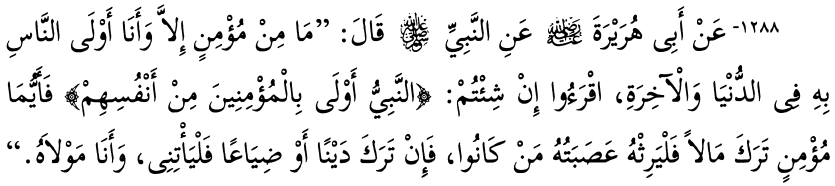 ١٢٨٨- عَنْ أَبِى هُرَيْرَةَ ﵁ عَنِ النَّبِيِّ ﷺ قَالَ: ”مَا مِنْ مُؤْمِنٍ إِلاَّ وَأَنَا أَوْلَى النَّاسِ
بِهِ فِى الدُّنْيَا وَالْآخِرَةِ، اقْرَءُوا إِنْ شِئْتُمْ: ﴿النَّبِيُّ أَوْلَى بِالْمُؤْمِنِينَ مِنْ أَنْفُسِهِمْ﴾ فَأَيُّمَا
مُؤْمِنٍ تَرَكَ مَالاً فَلْيَرِثْهُ عَصَبَتُهُ مَنْ كَانُوا، فَإِنْ تَرَكَ دَيْنًا أَوْ ضِيَاعًا فَلْيَأْتِنِى، وَأَنَا مَوْلاَهُ.“